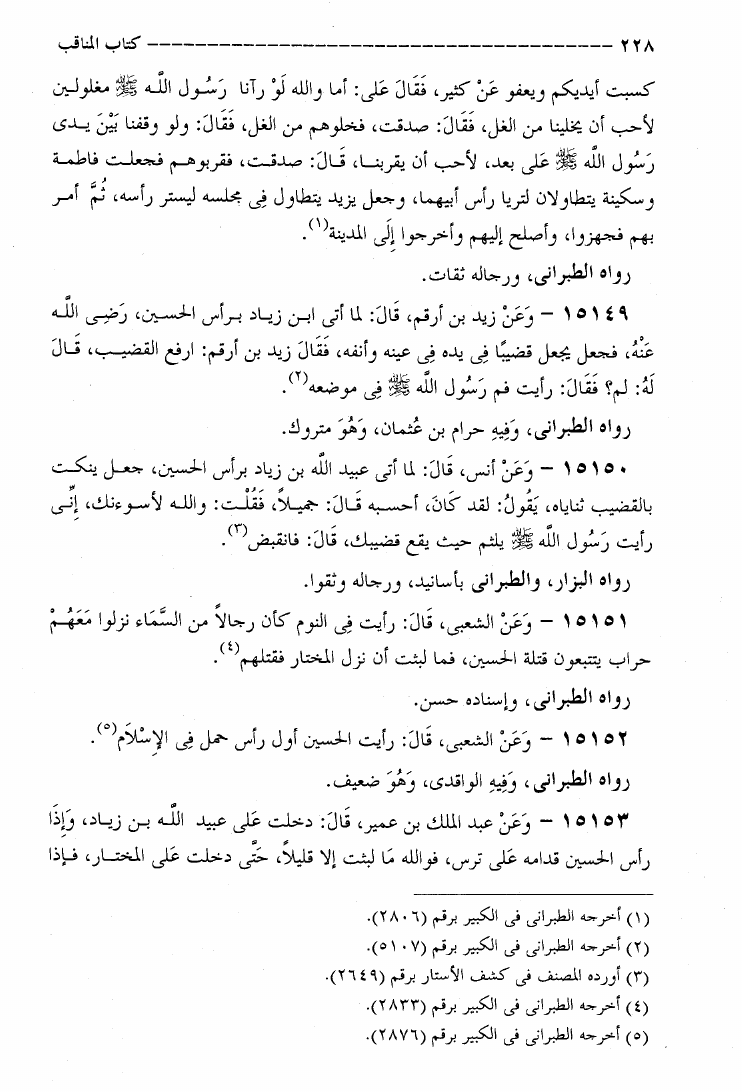 ٢٢٨ ـــــــــــــــــــــــــــــــــــــــــــــــــ كتاب المناقب
كسبت أيديكم ويعفو عَنْ كثير، فَقَالَ عَلى: أما والله لَوْ رآنا رَسُول اللَّه ﷺ مغلولين
لأحب أن يخلينا من الغل، فَقَالَ: صدقت، فخلوهم من الغل، فَقَالَ: ولو وقفنا بَيْنَ يدى
رَسُول اللَّه ﷺ عَلى بعد، لأحب أن يقربنا، قَالَ: صدقت، فقربوهم فجعلت فاطمة
وسكينة يتطاولان لتريا رأس أبيهما، وجعل يزيد يتطاول فِى مجلسه ليستر رأسه، ثُمَّ أمر
بهم فجهزوا، وأصلح إليهم وأخرجوا إِلَى المدينة(١).
رواه الطبرانى، ورجاله ثقات.
١٥١٤٩ – وَعَنْ زيد بن أرقم، قَالَ: لما أتى ابن زياد برأس الحسين، رَضِى اللَّه
عَنْهُ، فجعل يجعل قضيبًا فِى يده فِى عينه وأنفه، فَقَالَ زيد بن أرقم: ارفع القضيب، قَالَ
لَهُ: لم؟ فَقَالَ: رأيت فم رَسُول اللَّه ﷺ فِى موضعه(٢).
رواه الطبرانى، وَفِيهِ حرام بن عُثمان، وَهُوَ متروك.
١٥١٥٠ – وَعَنْ أنس، قَالَ: لما أتى عبيد اللَّه بن زياد برأس الحسين، جعل ينكت
بالقضيب ثناياه، يَقُولُ: لقد كَانَ، أحسبه قَالَ: جميلاً، فَقُلْت: واللـه لأسوءنك، إِنِّى
رأيت رَسُول اللَّه ﷺ يلثم حيث يقع قضيبك، قَالَ: فانقبض(٣).
رواه البزار، والطبرانى بأسانيد، ورجاله وثقوا.
١٥١٥١ – وَعَنْ الشعبى، قَالَ: رأيت فِى النوم كأن رجالاً من السَّمَاء نزلوا مَعَهُمْ
حراب يتتبعون قتلة الحسين، فما لبثت أن نزل المختار فقتلهم(٤).
رواه الطبرانى، وإسناده حسن.
١٥١٥٢ – وَعَنْ الشعبى، قَالَ: رأيت الحسين أول رأس حمل فِى الإِسْلَام(٥).
رواه الطبرانى، وَفِيهِ الواقدى، وَهُوَ ضعيف.
١٥١٥٣ – وَعَنْ عبد الملك بن عمير، قَالَ: دخلت عَلى عبيد اللَّه بن زياد، وَإِذَا
رأس الحسين قدامه عَلى ترس، فوالله مَا لبثت إلا قليلاً، حَتَّى دخلت عَلى المختار، فإذا
(١) أخرجه الطبرانى فى الكبير برقم (٢٨٠٦).
(٢) أخرجه الطبرانى فى الكبير برقم (٥١٠٧).
(٣) أورده المصنف فى كشف الأستار برقم (٢٦٤٩).
(٤) أخرجه الطبرانى فى الكبير برقم (٢٨٣٣).
(٥) أخرجه الطبرانى فى الكبير برقم (٢٨٧٦).